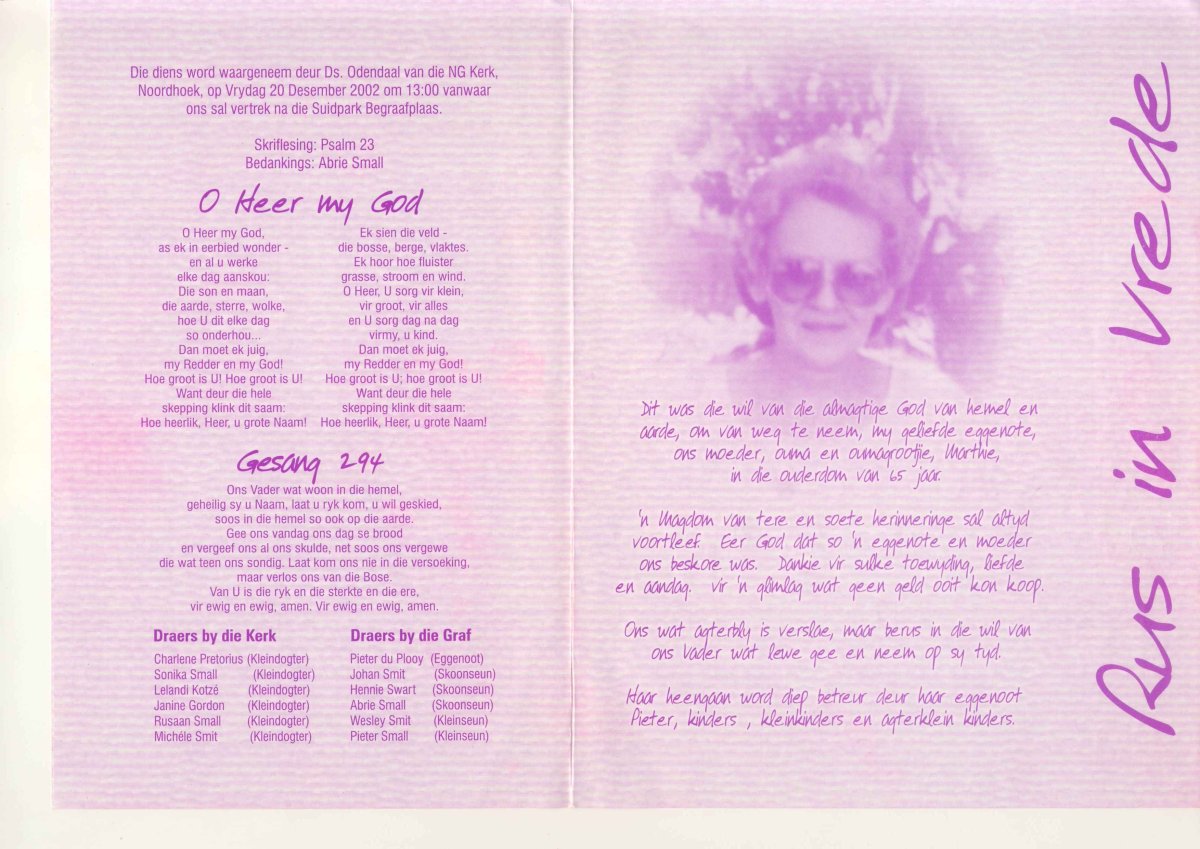 Die diens word waargeneem deur Ds. Odendaal van die NG Kerk,
Noordhoek, op Vrydag 20 Desember 2002 om 13:00 vanwaar
ons sal vertrek na die Suidpark Begraafplaas.
Skriflesing: Psalm 23
Bedankings: Abrie Small
O Heer my God
O Heer my God,
as ek in eerbied wonder -
en al u werke
elke dag aanskou:
Die son en maan,
die aarde, sterre, wolke,
hoe U dit elke dag
so onderhou...
Dan moet ek juig,
my Redder en my God!
Hoe groot is U! Hoe groot is U!
Want deur die hele
skepping klink dit saam:
Hoe heerlik, Heer, u grote Naam!
Ek sien die veld -
die bosse, berge, vlaktes.
Ek hoor hoe fluister
grasse, stroom en wind.
O Heer, U sorg vir klein,
vir groot, vir alles
en U sorg dag na dag
virmy, u kind.
Dan moet ek juig,
my Redder en my God!
Hoe groot is U; hoe groot is U!
Want deur die hele
skepping klink dit saam:
Hoe heerlik, Heer, u grote Naam!
Gesang 294
Ons Vader wat woon in die hemel,
geheilig sy u Naam, laat u ryk kom, u wil geskied,
soos in die hemel so ook op die aarde.
Gee ons vandag ons dag se brood
en vergeef ons al ons skulde, net soos ons vergewe
die wat teen ons sondig. Laat kom ons nie in die versoeking,
maar verlos ons van die Bose.
Van U is die ryk en die sterkte en die ere,
vir ewig en ewig, amen. Vir ewig en ewig, amen.
Draers by die Kerk
Charlene Pretorius (Kleindogter)
Sonika Small (Kleindogter)
Lelandi Kotzé (Kleindogter)
Janine Gordon (Kleindogter)
Rusaan Small (Kleindogter)
Michéle Smit (Kleindogter)
Draers by die Graf
Pieter du Plooy (Eggenoot)
Johan Smit (Skoonseun)
Hennie Swart (Skoonseun)
Abrie Small (Skoonseun)
Wesley Smit (Kleinseun)
Pieter Small (Kleinseun)
Dit was die wil van die almagtige God van hemel en
aarde, om van weg te neem, my geliefde eggenote,
ons moeder, ouma en oumagrootjie, Marthie,
in die ouderdom van 65 jaar.
'n Magdom van tere en soete herinneringe sal altyd
voortleef. Eer God dat so 'n eggenote en moeder
ons beskore was. Dankie vir sulke toewyding, liefde
en aandag. vir 'n glimlag wat geen geld ooit kon koop.
Ons wat agterbly is verslae, maar berus in die wil van
ons Vader wat lewe gee en neem op sy tyd.
Haar heengaan word diep betreur deur haar eggenoot
Pieter, kinders , kleinkinders en agterklein kinders.
Rus in Vrede